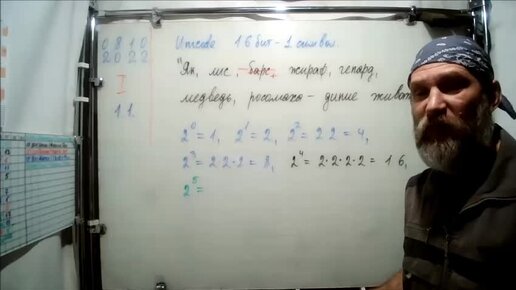 08 10
2022
I
11.
16 бит - 1 символ.
"Як, лис, барс, жираф, гепард,
медведь, росомаха - дикие живот
2⁰ = 1, 2¹ = 2, 2² = 2 2 = 4,
2³ = 2 2·2 = 8, 2⁴ = 2·2·2·2 = 16,
2⁵ =